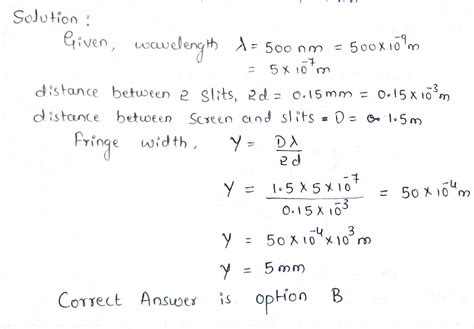 Solution :
Given, wavelength λ = 500 nm = 500×10⁻⁹m
= 5×10⁻⁷m
distance between 2 slits, 2d = 0.15mm = 0.15×10⁻³m
distance between screen and slits = D = 1.5m
Fringe width, Y = Dλ / 2d
Y = 1.5×5×10⁻⁷ / 0.15×10⁻³ = 50×10⁻⁴m
Y = 50×10⁻⁴×10³m
Y = 5mm
Correct Answer is option B